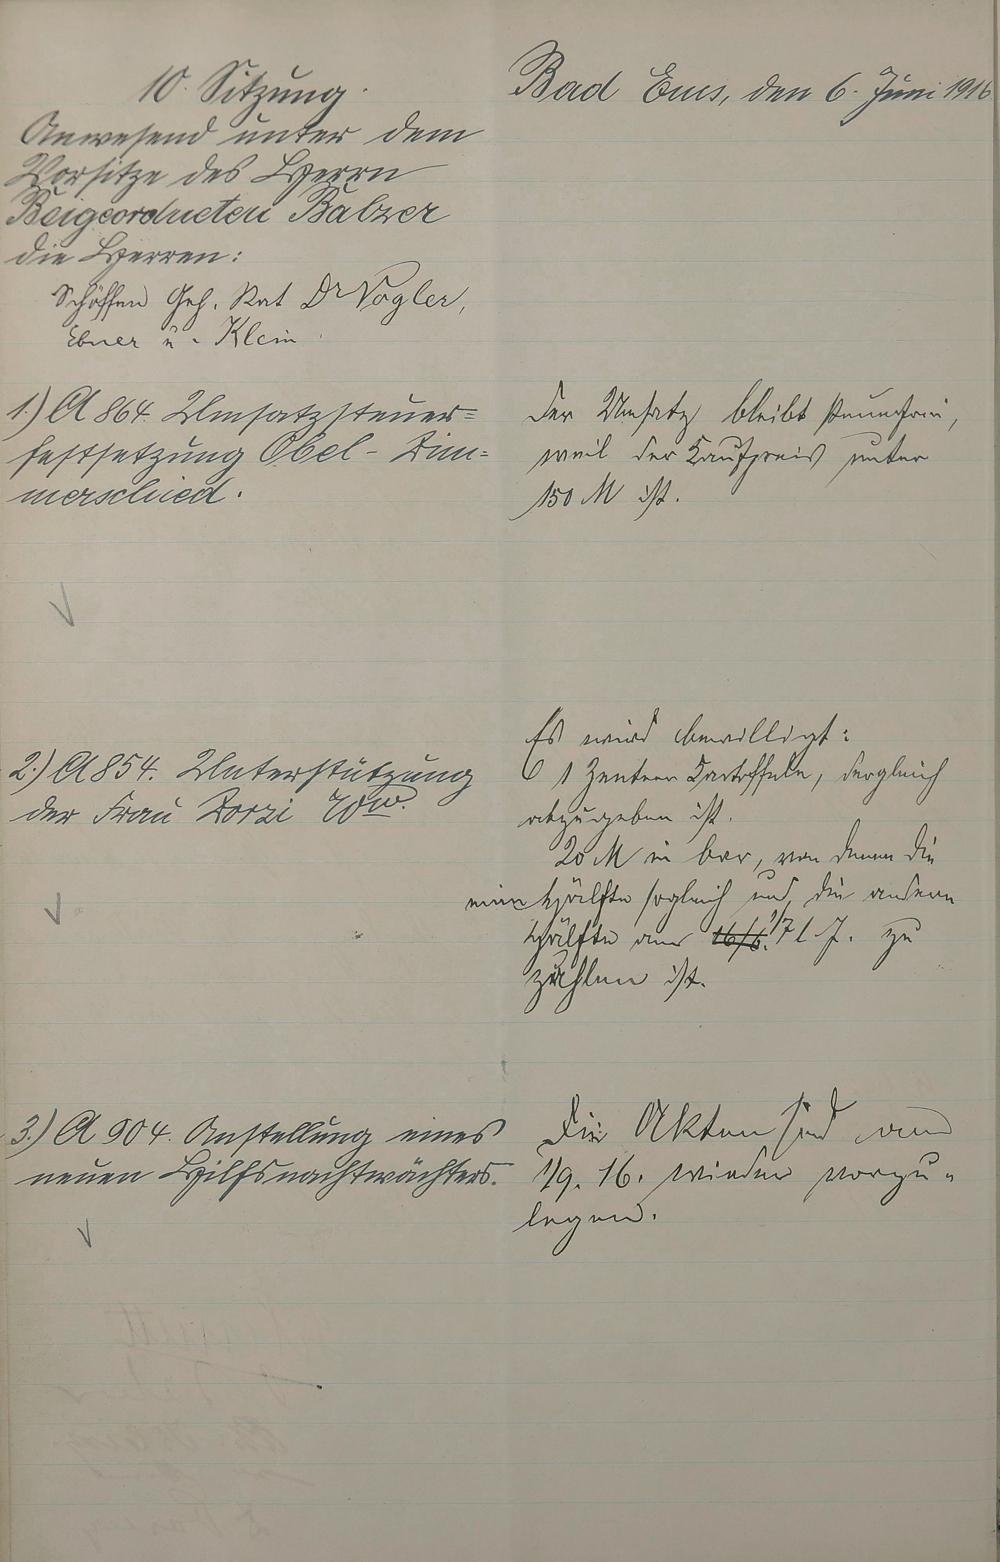 10. Sitzung.
Anwesend unter dem
Vorsitze des Herrn
Beigeordneten Balzer
die Herren:
Schöffen Geh. Rat Dr Vogler,
Ebner u. Klein
Bad Ems, den 6. Juni 1916
1.) A 864. Umsatzsteuer-
festsetzung Obel - Dim-
merschied.
Der Umsatz bleibt steuerfrei,
weil der Kaufpreis unter
150 M ist.
2.) A 854. Unterstützung
der Frau Dorzi Ww.
Es wird bewilligt:
1 Zentner Kartoffeln, der sogleich
abzugeben ist.
20 M in bar, von denen die
eine Hälfte sogleich und die andere
Hälfte am 16/6. 1/7 l. J. zu
zahlen ist.
3.) A 904. Anstellung eines
neuen Hilfsnachtwächters.
Die Akten sind am
1/9. 16. wieder vorzu-
legen.